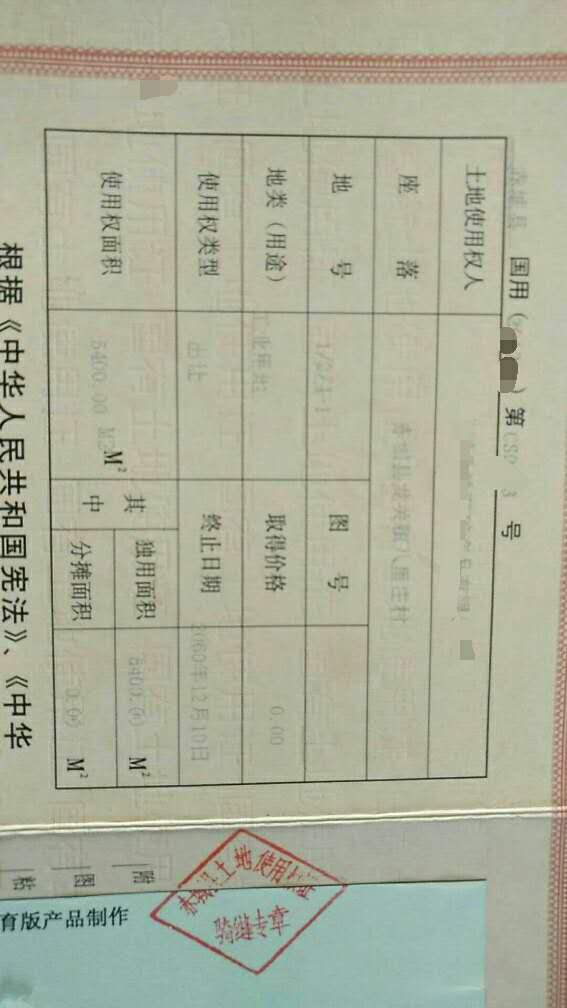 赤城县 国用( )第CSP 3号
土地使用权人
座落 赤城县龙关镇八里庄村
地号 1/2/1-1 图号
地类(用途) 工业用地 取得价格 0.00
使用权类型 出让 终止日期 2060年12月10日
使用权面积 5400.00 M2M² 其中 独用面积 5400.00 M²
分摊面积 0.00 M²
根据《中华人民共和国宪法》、《中华
附图粘
土地使用
骑缝专章
育版产品制作